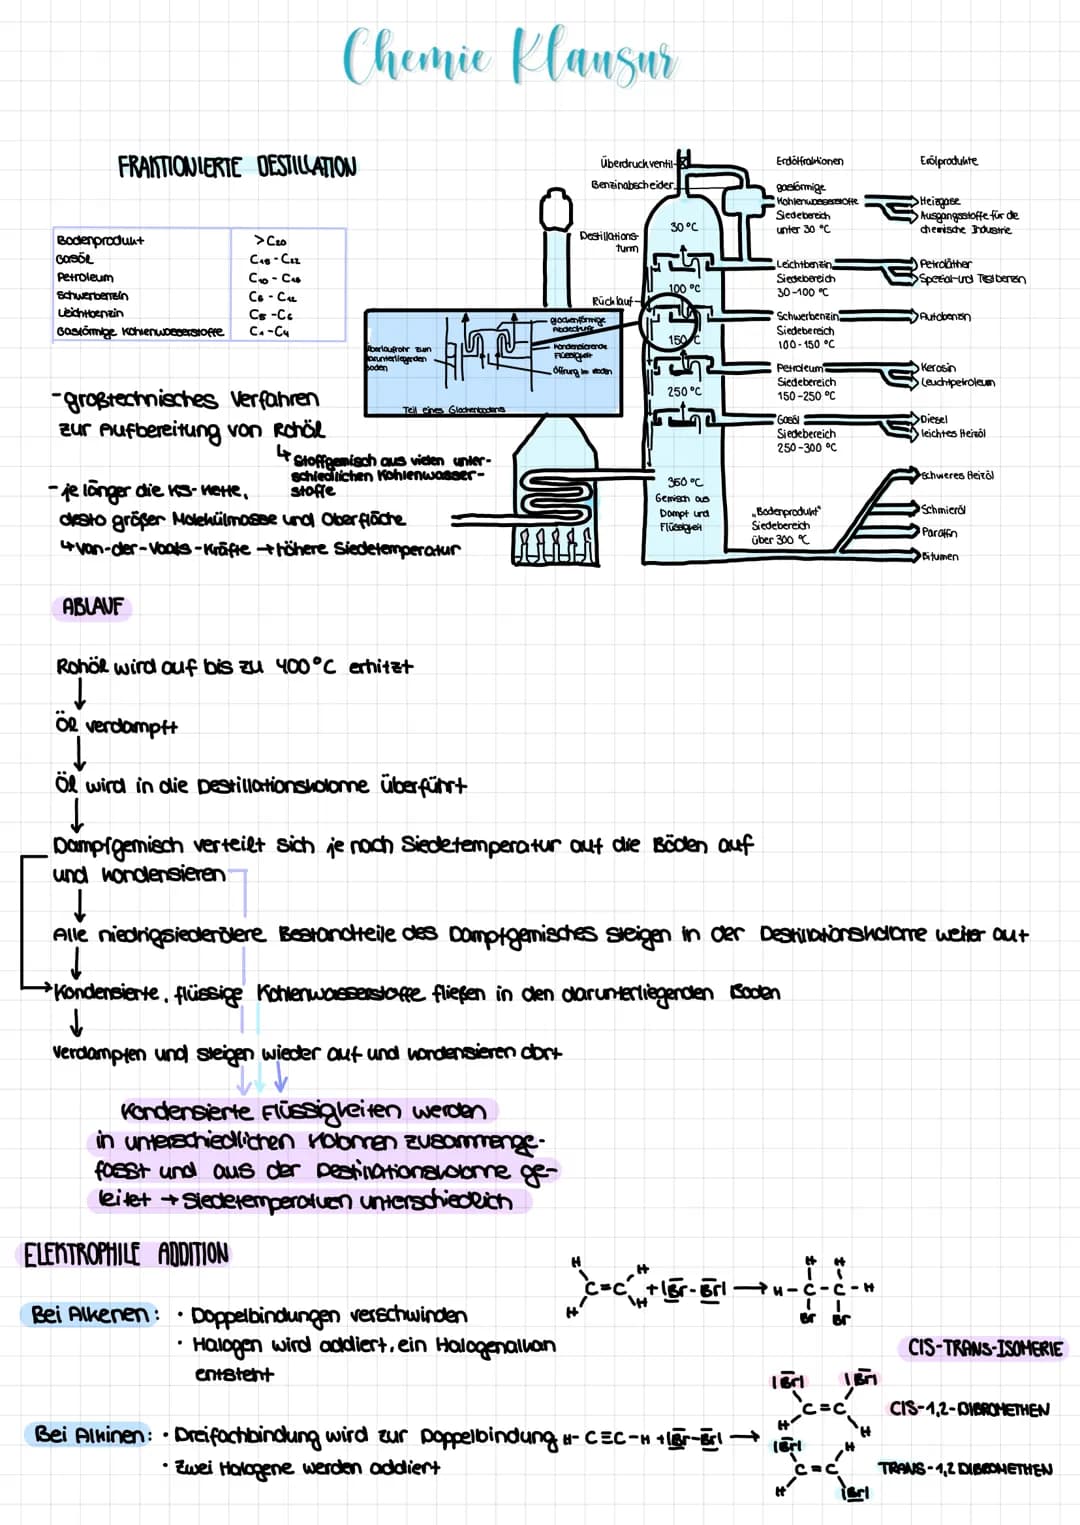 Chemie Klausur
FRAKTIONIERTE DESTILLATION
Bodenprodukt >C20
Gasöl
Petroleum
Schwerbenzin
Leichtbenzin C5-C6
Gasförmige Kohlenwasserstoffe C1-C4
-großtechnisches Verfahren
zur Aufbereitung von Rohöl
↳ Stoffgemisch aus vielen unter-
schiedlichen Kohlenwasser-
stoffe
-je länger die KS-Kette,
desto größer Molekülmasse und Oberfläche
↳Van-der-Waals-Kräfte →höhere Siedetemperatur
Überdruckventil
Benzinabscheider
Destillations-
turm
Rücklauf
30°C
100 °C
150 °C
250 °C
350 °C
Gemisch aus
Dampf und
Flüssigkeit
Überlaufrohr zum
darunterliegenden
Boden
glockenförmige
Abdeckung
Kondensierende
Flüssigkeit
Öffnung im Boden
Teil eines Glockenbodens
Erdölfraktionen
gasförmige
Kohlenwasserstoffe
Siedebereich
unter 30 °C
Leichtbenzin
Siedebereich
30-100 °C
Schwerbenzin
Siedebereich
100-150 °C
Petroleum
Siedebereich
150-250 °C
Gasöl
Siedebereich
250-300 °C
„Bodenprodukt"
Siedebereich
über 300 °C
Erölprodukte
Heizgase
Ausgangsstoffe für die
chemische Industrie
Petroläther
Spezial-und Testbenzin
Autobenzin
Kerosin
Leuchtpetroleum
Diesel
leichtes Heizöl
Schweres Heizöl
Schmieröl
Paraffin
Bitumen
ABLAUF
Rohöl wird auf bis zu 400°C erhitzt
Öl verdampft
Öl wird in die Destillationskolonne überführt
Dampfgemisch verteilt sich je nach Siedetemperatur auf die Böden auf
und kondensieren
Alle niedrigsiedendere Bestandteile des Dampfgemisches steigen in der Destillationskolonne weiter auf
Kondensierte, flüssige Kohlenwasserstoffe fließen in den darunterliegenden Boden
Verdampfen und steigen wieder auf und kondensieren dort
Kondensierte Flüssigkeiten werden
in unterschiedlichen Kolonnen zusammenge-
fasst und aus der Destillationskolonne ge-
leitet → Siedetemperaturen unterschiedlich
ELEKTROPHILE ADDITION
Bei Alkenen: · Doppelbindungen verschwinden
· Halogen wird addiert, ein Halogenalkan
entsteht
H H
C=C +|Br-Br| → H-C-C-H
H H
H H
Br Br
Bei Alkinen: · Dreifachbindung wird zur Doppelbindung H-C≡C-H +|Br-Br| →
· Zwei Halogene werden addiert
CIS-TRANS-ISOMERIE
|Br| |Br|
C=C
H H
CIS-1,2-DIBROMETHEN
|Br| H
C=C
H |Br|
TRANS-1,2 DIBROMETHEN